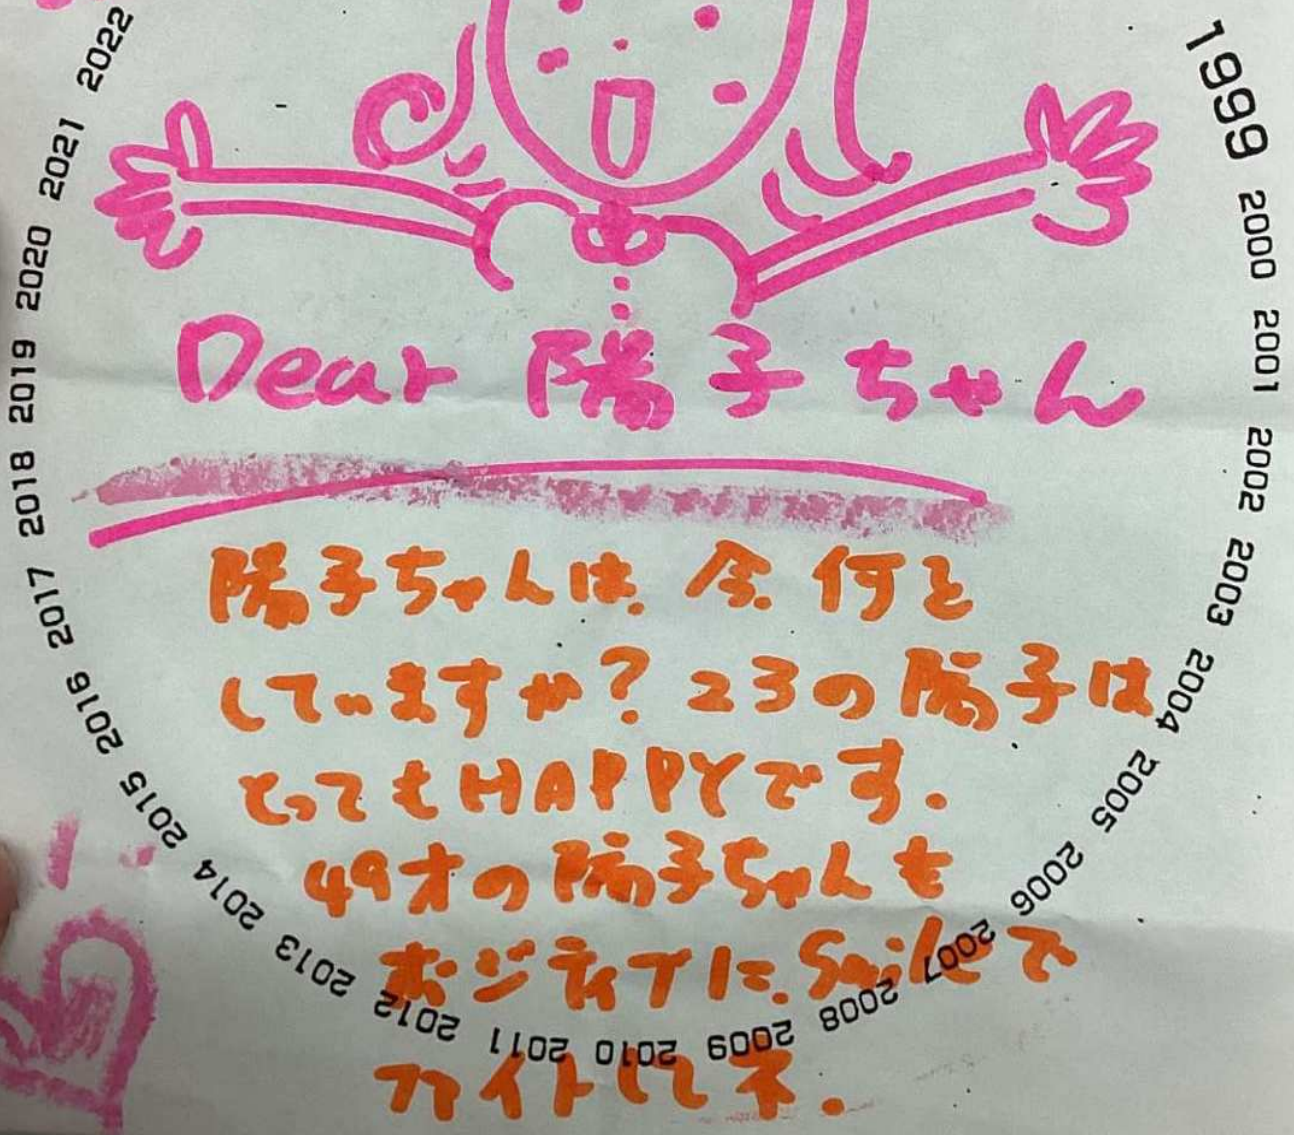 1999 2000 2001 2002 2003 2004 2005 2006 2007 2008 2009 2010 2011 2012 2013 2014 2015 2016 2017 2018 2019 2020 2021 2022
Dear 陽子ちゃん
陽子ちゃんは、今、何を
していますか？23の陽子は
とってもHAPPYです。
49才の陽子ちゃんも
ポジティブに、Smileで
ファイトしてネ。